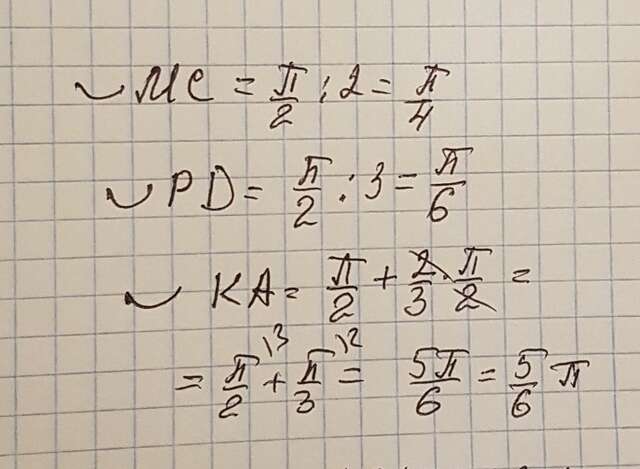 ◡ MC = π/2 : 2 = π/4
◡ PD = π/2 : 3 = π/6
◡ KA = π/2 + 2/3 · π/2 =
= π/2 \3 + π/3 \2 = 5π/6 = 5/6 π